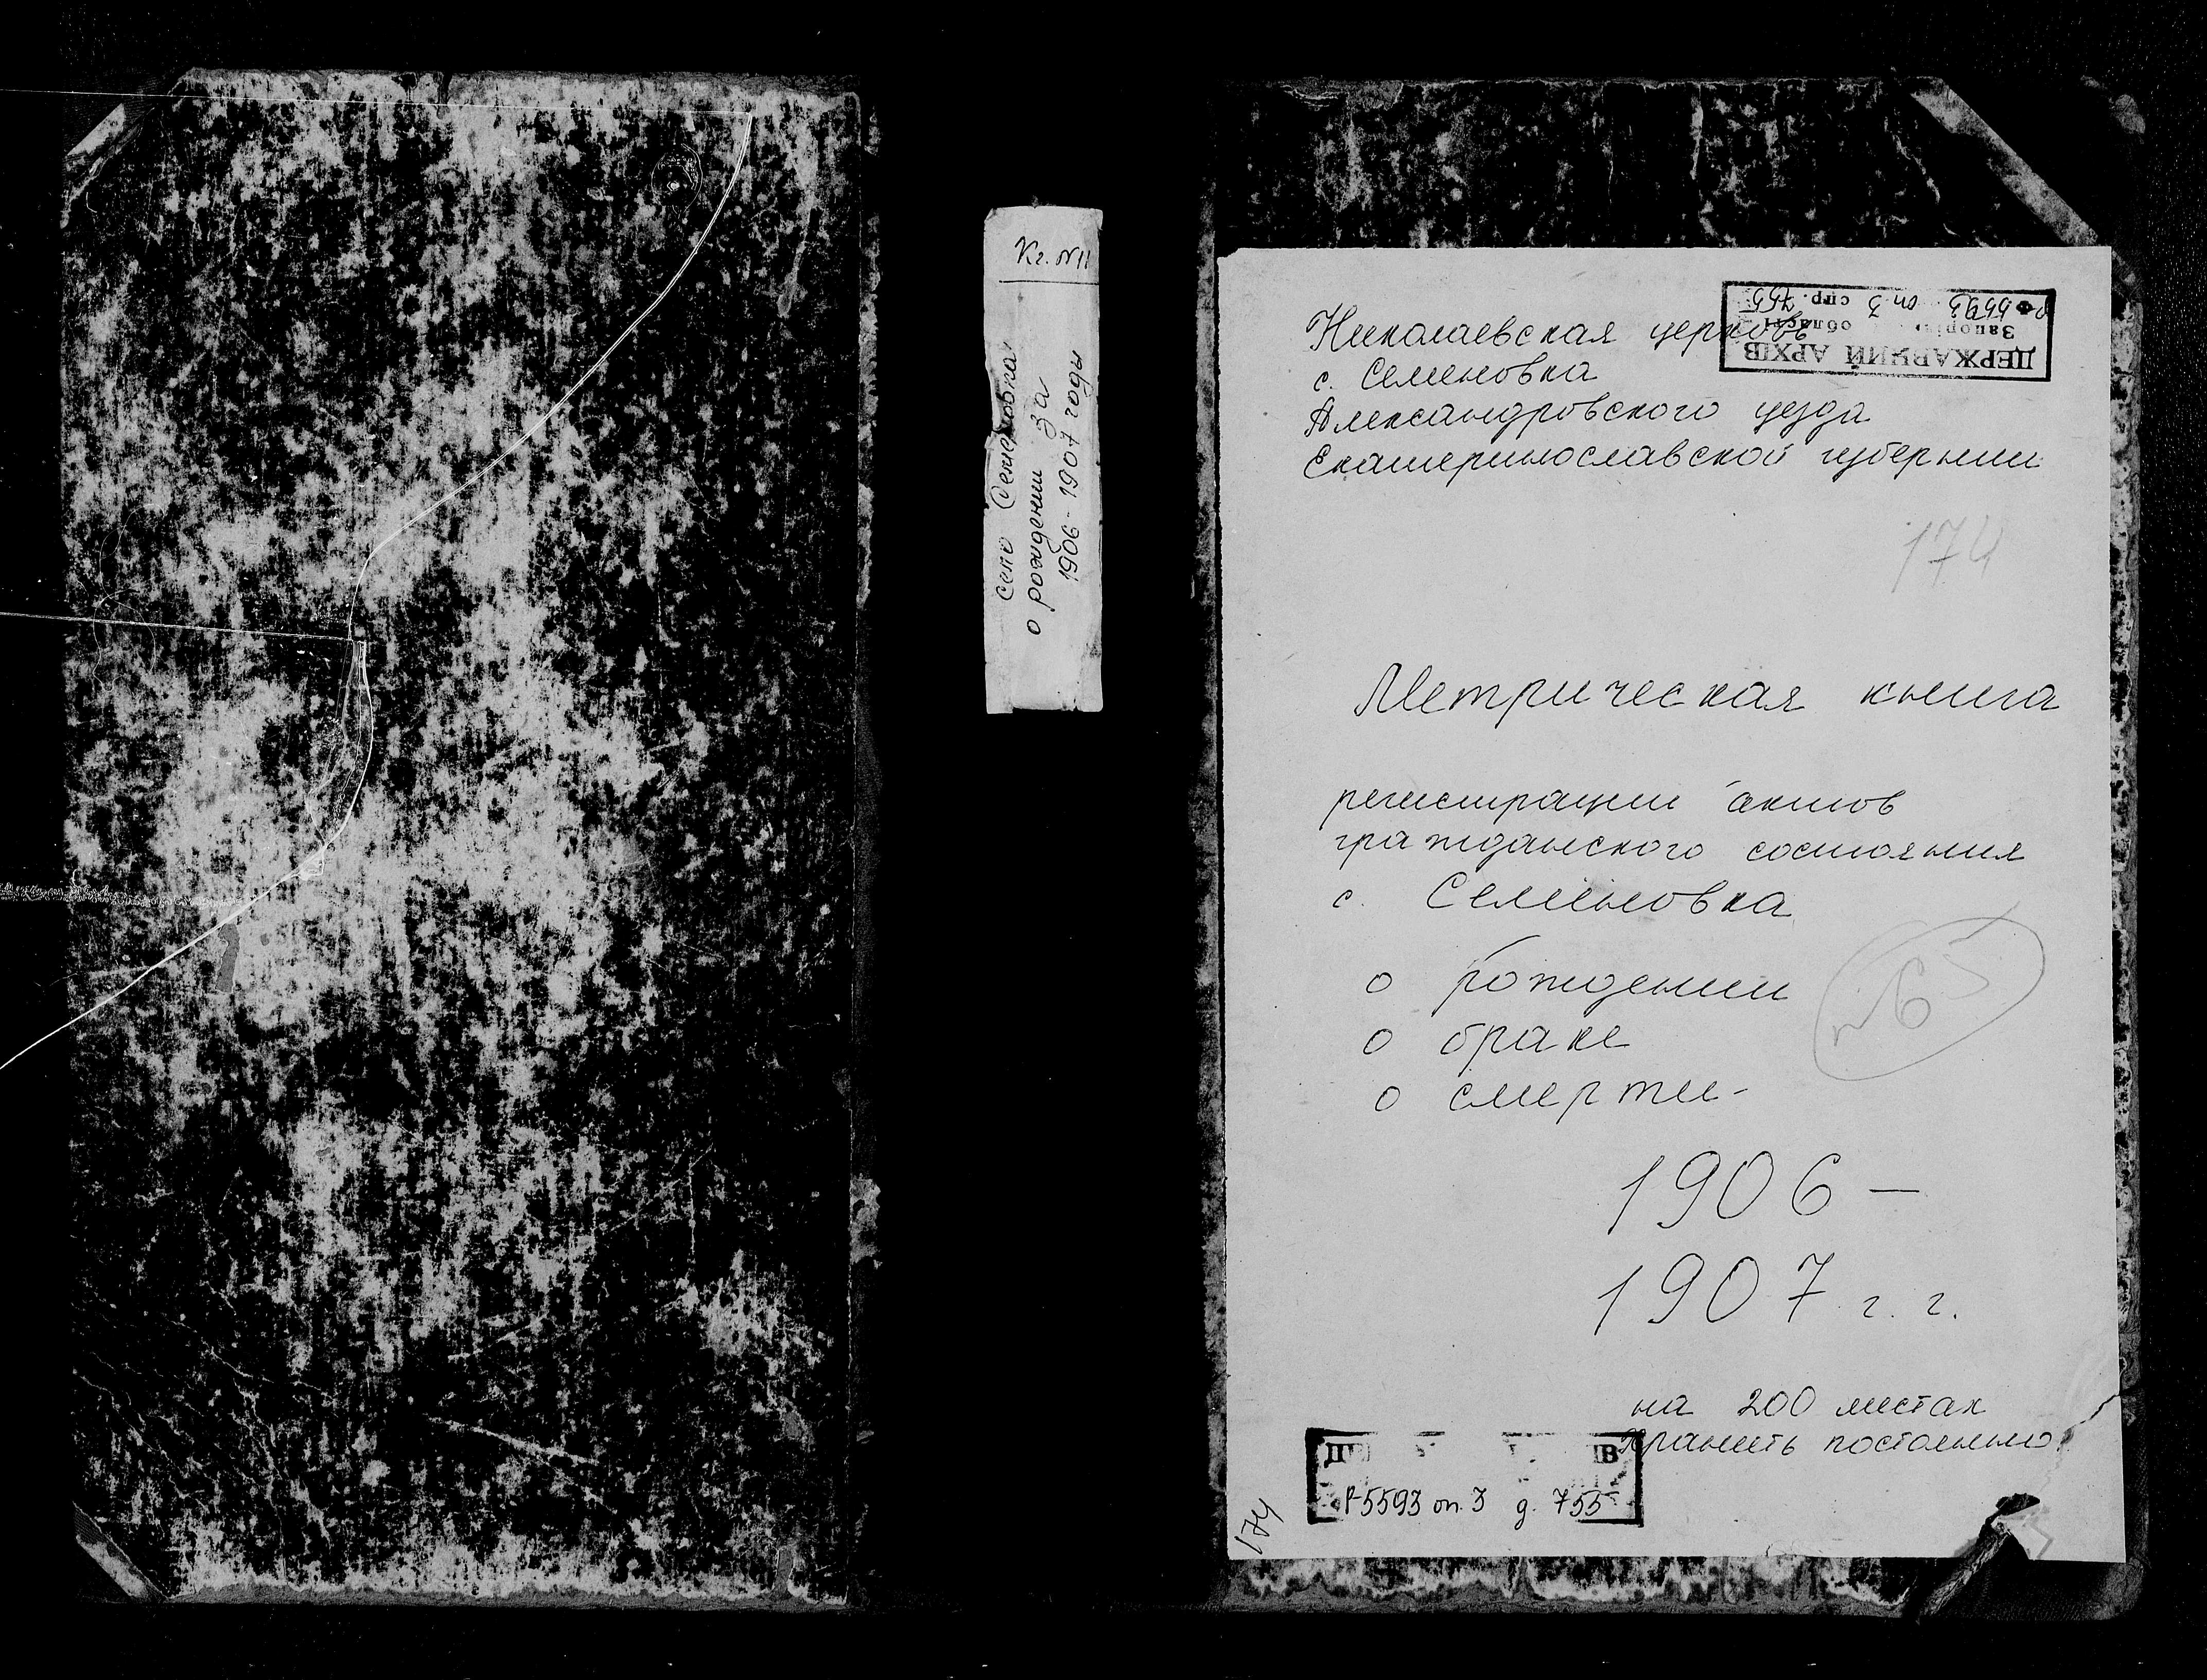 Кг. №11
село Семеновка
о рождении за
1906-1907 годы
Николаевская церковь
с. Семеновка
Александровского уезда
Екатеринославской губернии
ДЕРЖАВНИЙ АРХІВ
області
Р-5593 оп 3 спр. 755
174
Метрическая книга
регистрации актов
гражданского состояния
с. Семеновка
о рождении
о браке
о смерти-
1906 -
1907 г. г.
на 200 листах
хранить постоянно
Р-5593 оп. 3 д. 755
174